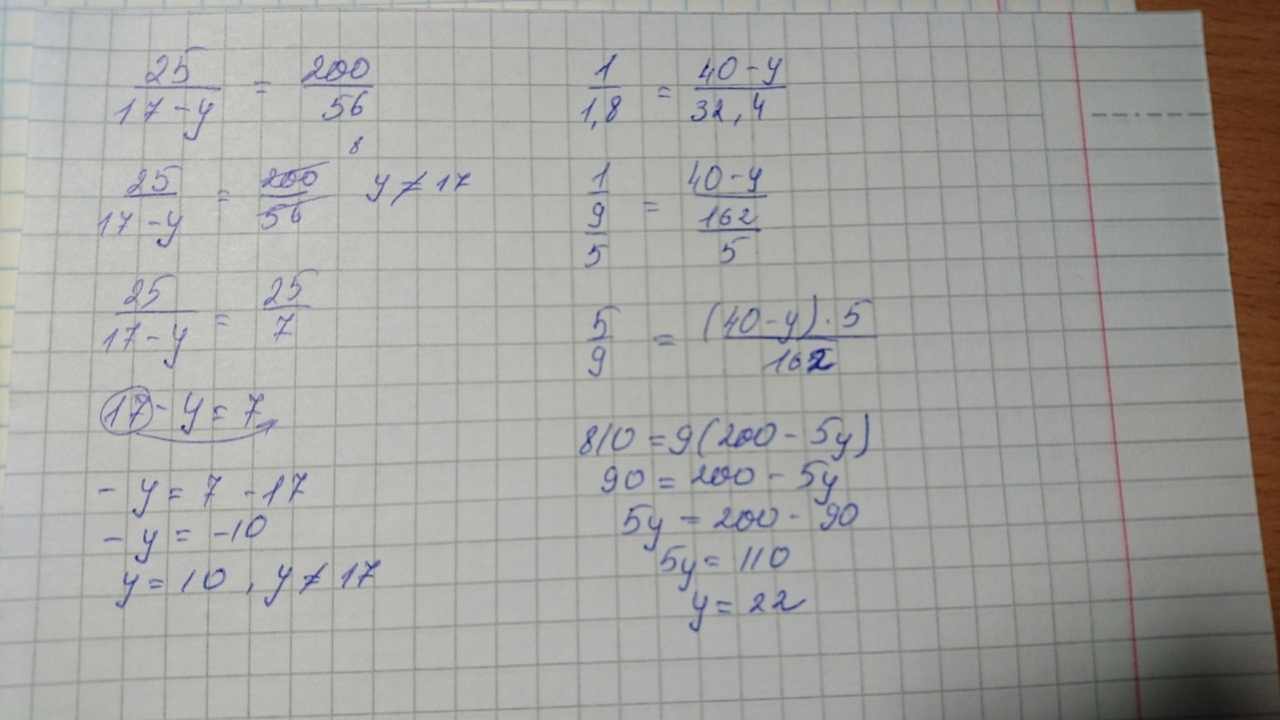 25/(17-y) = 200/56
8
25/(17-y) = 200/56   y ≠ 17
25/(17-y) = 25/7
17 - y = 7
- y = 7 - 17
- y = -10
y = 10 , y ≠ 17
1/1,8 = (40-y)/32,4
1/(9/5) = (40-y)/(162/5)
5/9 = ((40-y)·5)/162
810 = 9(200 - 5y)
90 = 200 - 5y
5y = 200 - 90
5y = 110
y = 22